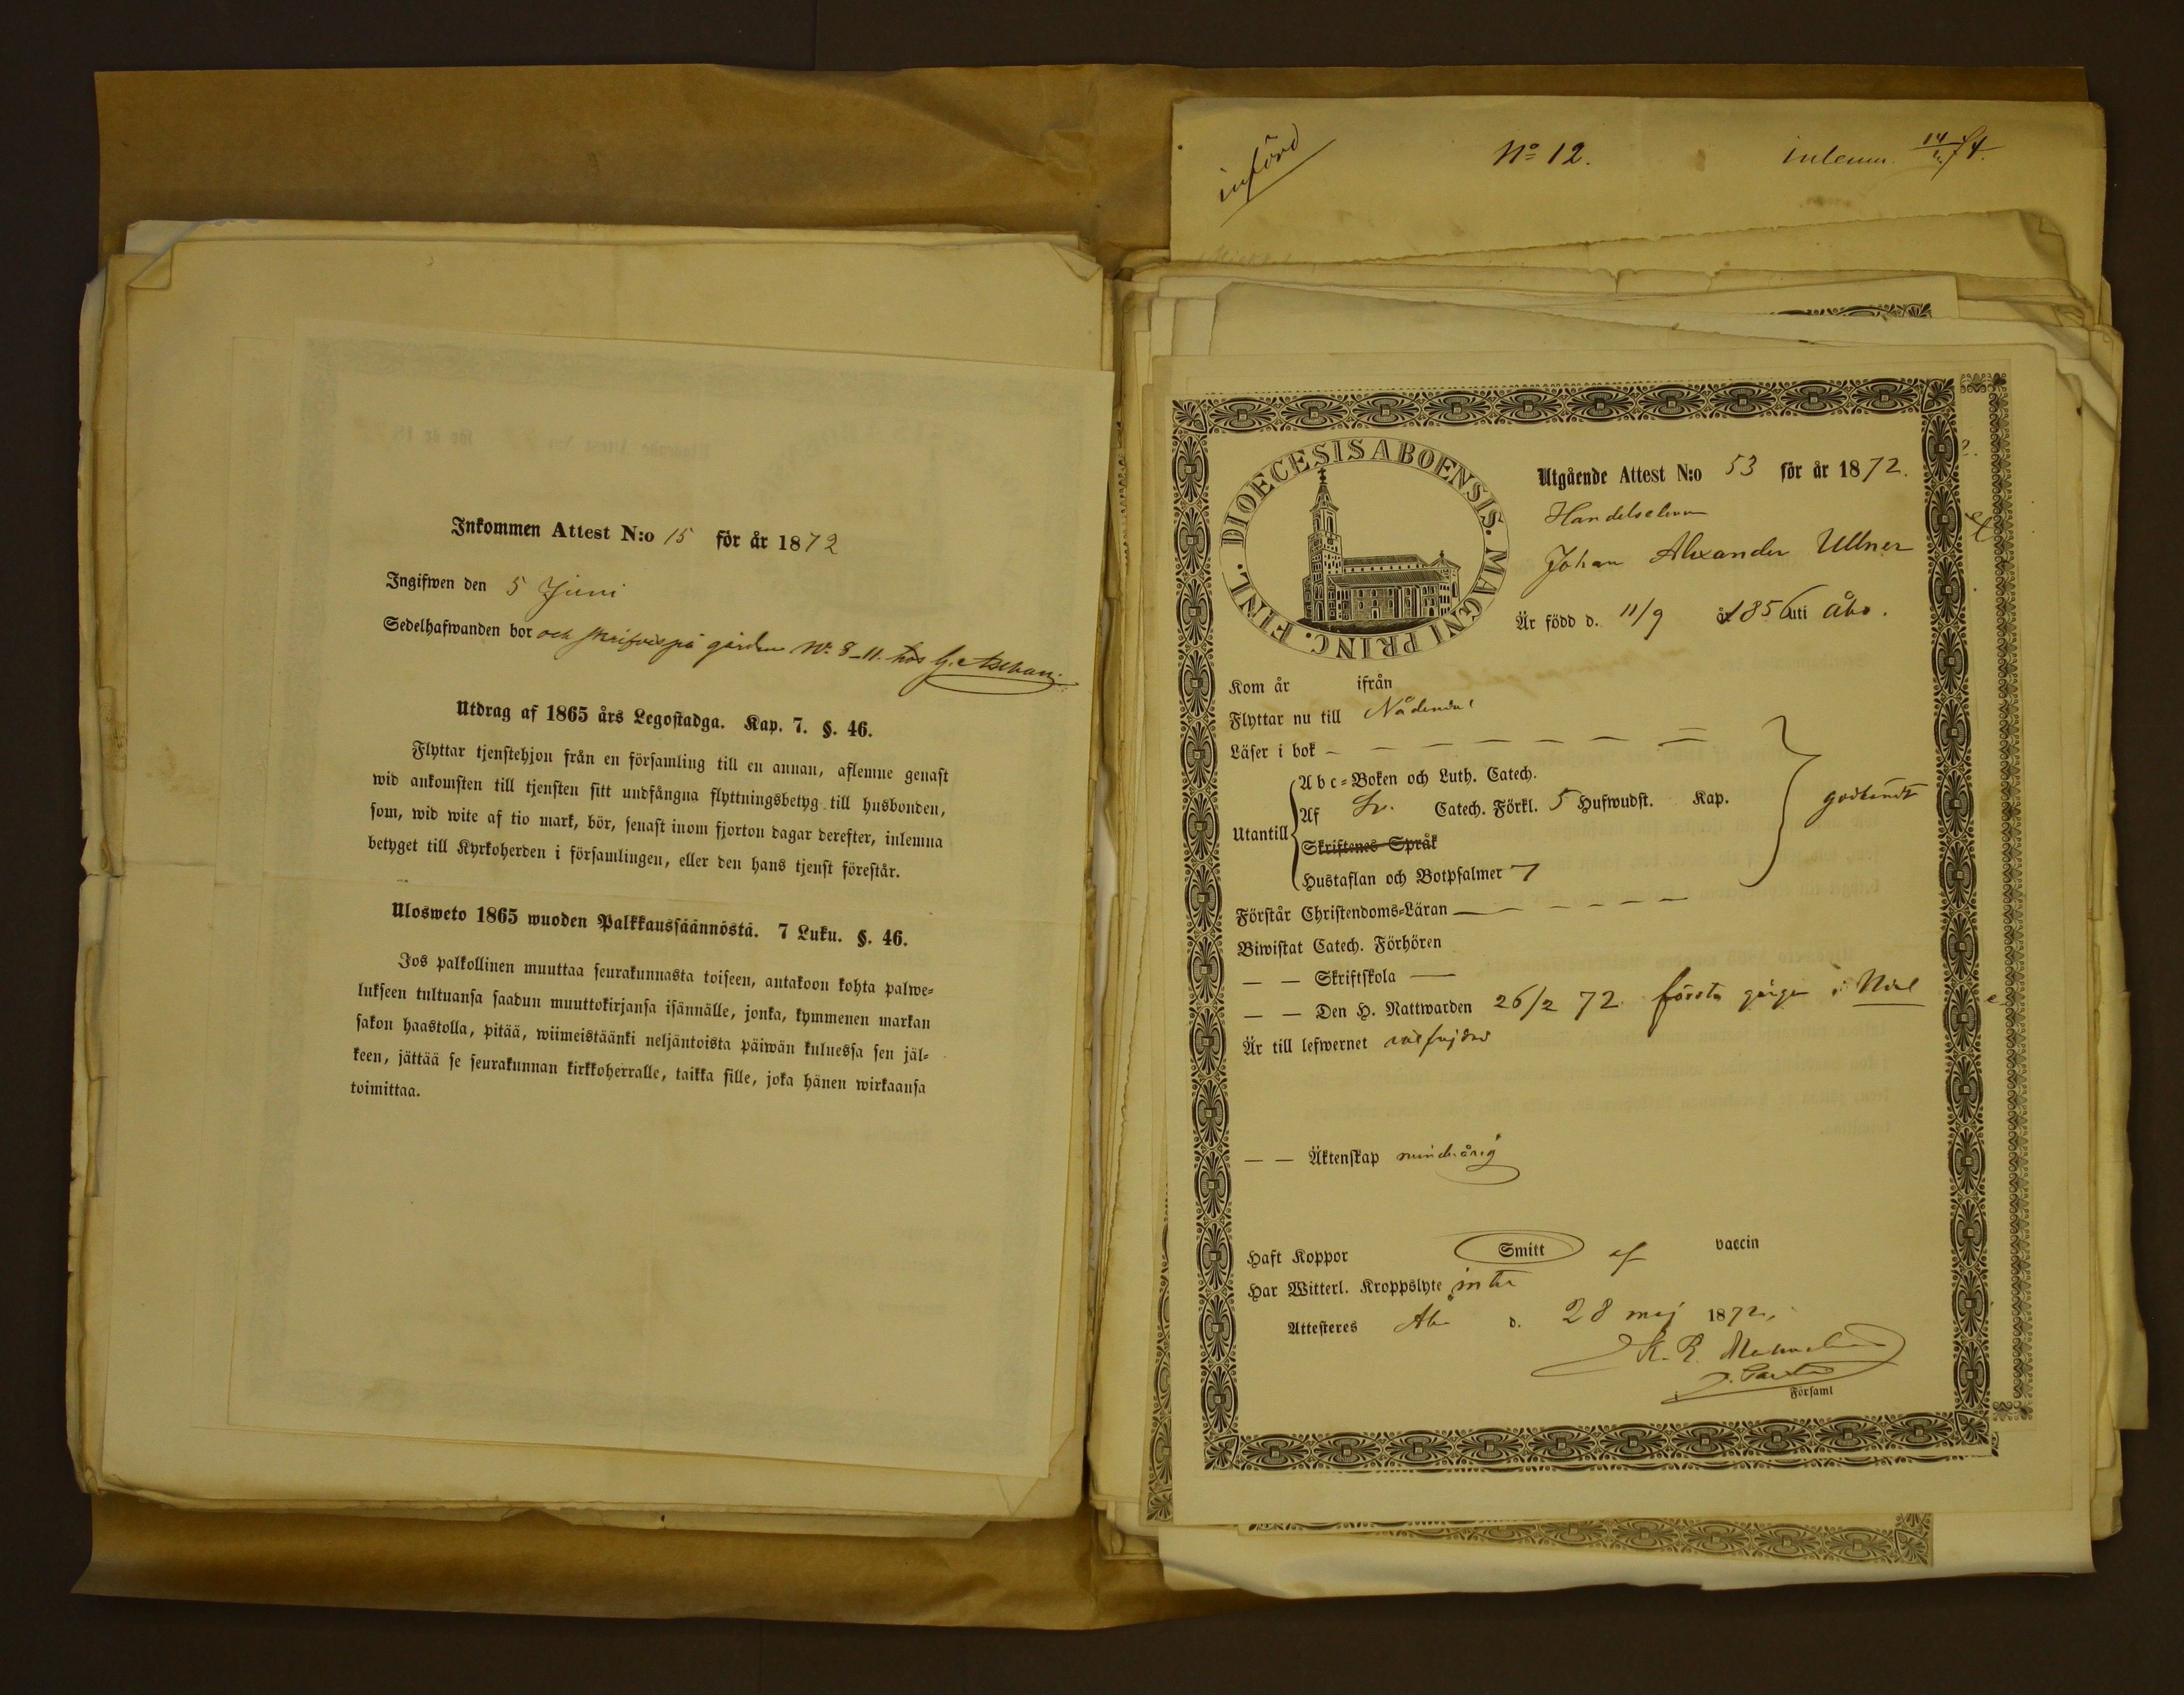 Inkommen Attest N:o 15 för år 1872
Ingifwen den 5 Juni
Sedelhafwanden bor och skrifves på gården No 8-11. hos G. Aschan.
Utdrag af 1865 års Legostadga. Kap. 7. §. 46.
Flyttar tjenstehjon från en församling till en annan, aflemne genast
wid ankomsten till tjensten sitt undfångna flyttningsbetyg till husbonden,
som, wid wite af tio mark, bör, senast inom fjorton dagar derefter, inlemna
betyget till Kyrkoherden i församlingen, eller den hans tjenst förestår.
Ulosweto 1865 wuoden Palkkaussäännöstä. 7 Luku. §. 46.
Jos palkollinen muuttaa seurakunnasta toiseen, antakoon kohta palwe=
lukseen tultuansa saadun muuttokirjansa isännälle, jonka, kymmenen markan
sakon haastolla, pitää, wiimeistäänki neljäntoista päiwän kuluessa sen jäl=
keen, jättää se seurakunnan kirkkoherralle, taikka sille, joka hänen wirkaansa
toimittaa.
införd
No 12.
inlemn. 14/ 74.
FINL. DIOECESIS ABOENSIS. MAGNI PRINC.
Utgående Attest N:o 53 för år 1872.
Handelselev
Johan Alexander Ullner
Är född d. 11/9 å 1856 uti Åbo.
Kom år ifrån
Flyttar nu till Nådendal
Läser i bok — — — — — — —
Abc=Boken och Luth. Catech.
Utantill Af Sv. Catech. Förkl. 5 Hufwudst. Kap.
godkändt
Skriftenes Språk
Hustaflan och Botpsalmer 7
Förstår Christendoms=Läran — — — — — —
Biwistat Catech. Förhören
— — Skriftskola —
— — Den H. Nattwarden 26/2 72 första gången i
Är till lefwernet välfrejdad
— — Äktenskap minderårig
Haft Koppor Smitt af vaccin
Har Witterl. Kroppslyte inte
Attesteres Åbo d. 28 maj 1872.
K. R.
Församl